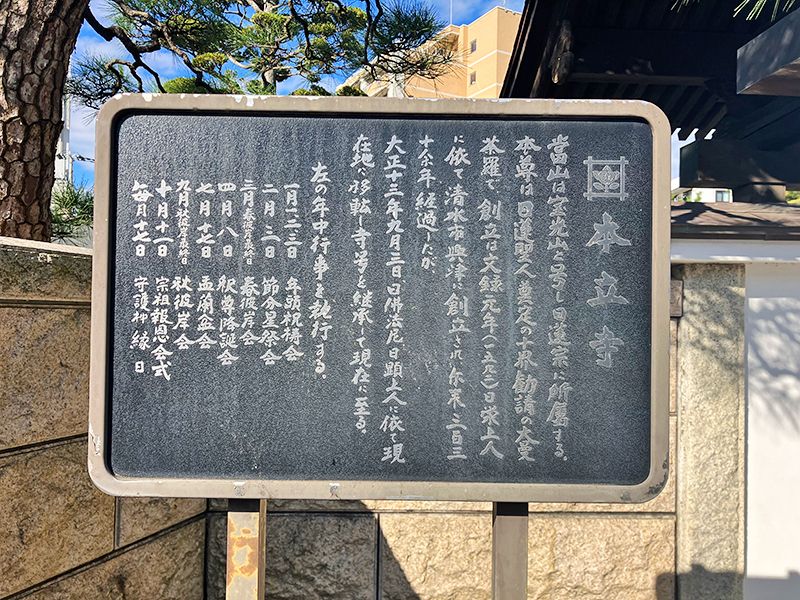 本立寺
当山は宝光山と号し日蓮宗に所属する。
本尊は日蓮聖人奠定の十界勧請の大曼
荼羅で、創立は文録元年(一五九二)日栄上人
に依て清水市興津に創立され尓来三百三
十余年経過したが
大正十三年九月三日日佛法尼日顕上人に依て現
在地に移転し寺号を継承して現在に至る。
左の年中行事を執行する。
一月一二三日 年頭祝祷会
二月三日 節分星祭会
三月春彼岸最終日 春彼岸会
四月八日 釈尊降誕会
七月十七日 盂蘭盆会
九月秋彼岸最終日 秋彼岸会
十月十一日 宗祖報恩会式
毎月十七日 守護神縁日